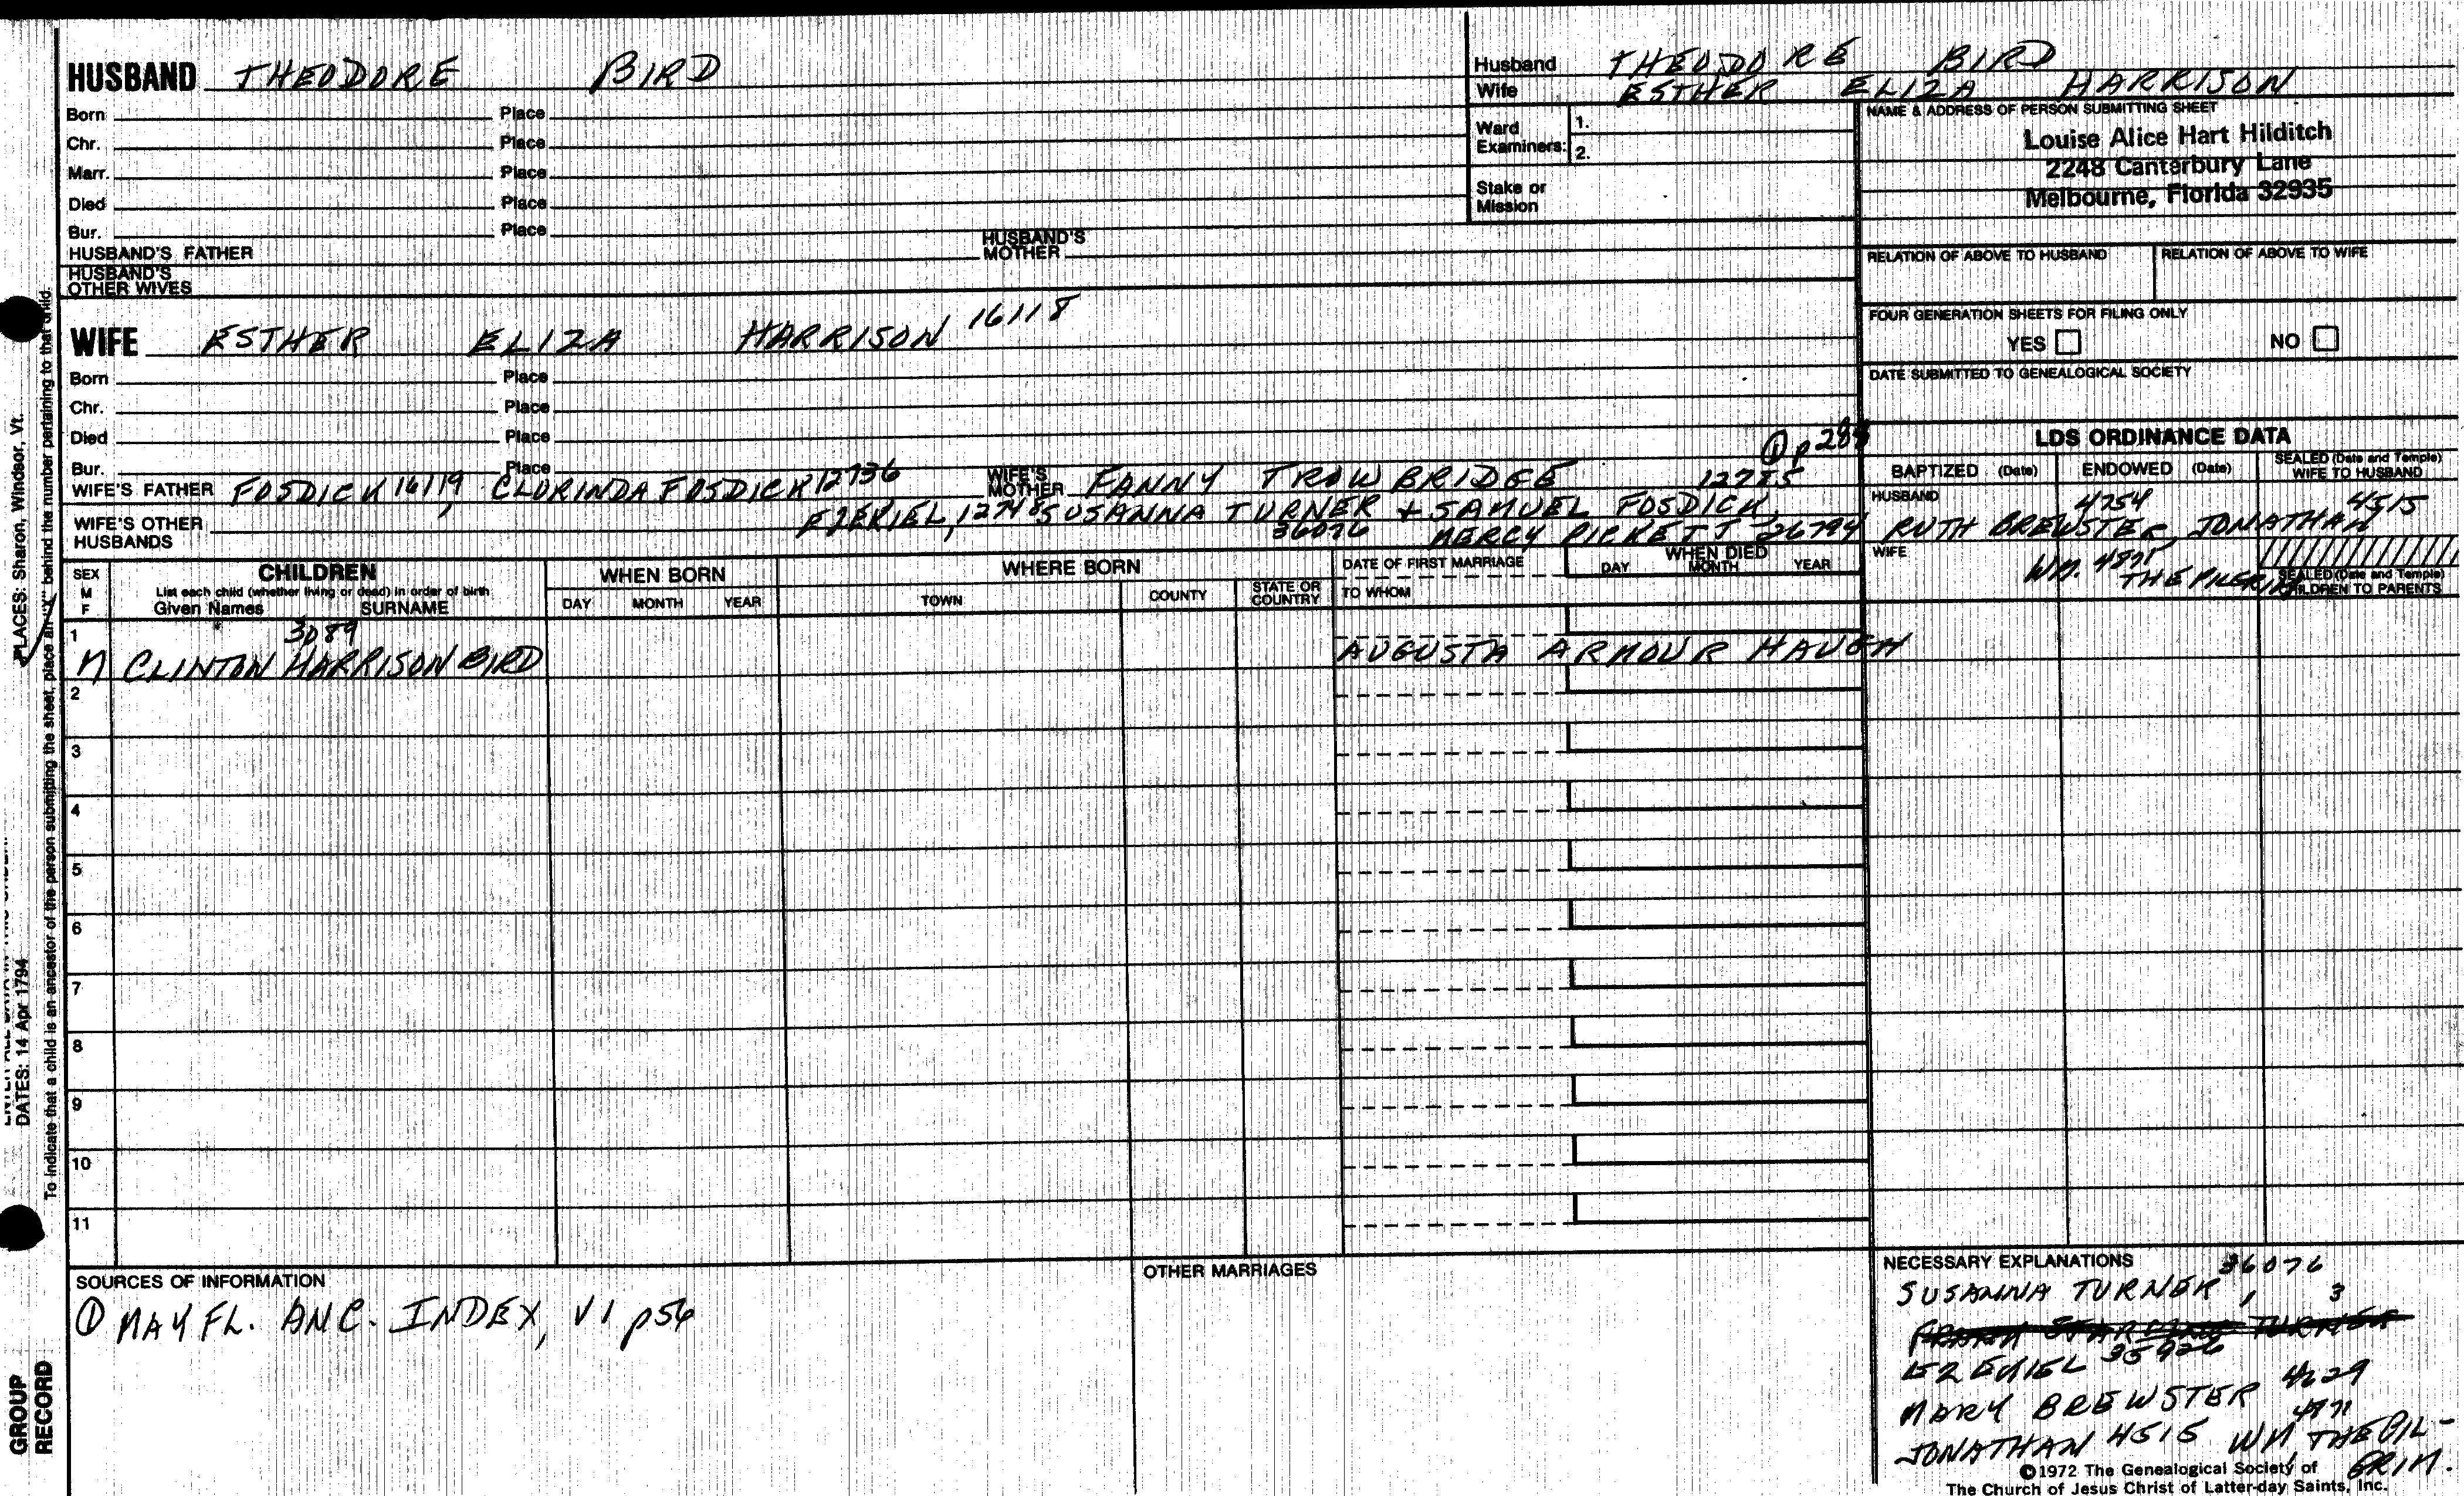 HUSBAND THEODORE BIRD
Born Place
Chr. Place
Marr. Place
Died Place
Bur. Place
HUSBAND'S FATHER HUSBAND'S MOTHER
HUSBAND'S OTHER WIVES
Husband THEODORE BIRD
Wife ESTHER ELIZA HARRISON
Ward Examiners: 1.
2.
Stake or Mission
NAME & ADDRESS OF PERSON SUBMITTING SHEET
Louise Alice Hart Hilditch
2248 Canterbury Lane
Melbourne, Florida 32935
RELATION OF ABOVE TO HUSBAND RELATION OF ABOVE TO WIFE
FOUR GENERATION SHEETS FOR FILING ONLY
YES NO
DATE SUBMITTED TO GENEALOGICAL SOCIETY
WIFE ESTHER ELIZA HARRISON 16118
Born Place
Chr. Place
Died Place
Bur. Place
① p 288
WIFE'S FATHER FOSDICK 16119, CLORINDA FOSDICK 12736 WIFE'S MOTHER FANNY TROWBRIDGE 12725
EZEKIEL, 12748 SUSANNA TURNER + SAMUEL FOSDICK,
WIFE'S OTHER HUSBANDS 36076 MERCY PICKETT 26794
LDS ORDINANCE DATA
BAPTIZED (Date) ENDOWED (Date) SEALED (Date and Temple) WIFE TO HUSBAND
HUSBAND 4754 4515
RUTH BREWSTER, JONATHAN
WIFE WM. 4871 THE PILGRIM
SEALED (Date and Temple) CHILDREN TO PARENTS
SEX M F
CHILDREN
List each child (whether living or dead) in order of birth
Given Names SURNAME
WHEN BORN
DAY MONTH YEAR
WHERE BORN
TOWN COUNTY STATE OR COUNTRY
DATE OF FIRST MARRIAGE
TO WHOM
WHEN DIED
DAY MONTH YEAR
3089
1 M CLINTON HARRISON BIRD AUGUSTA ARMOUR HAUGH
2
3
4
5
6
7
8
9
10
11
SOURCES OF INFORMATION
① MAYFL. ANC. INDEX, V1 p56
OTHER MARRIAGES
NECESSARY EXPLANATIONS 36076
SUSANNA TURNER, 3
EZEKIEL 35926
MARY BREWSTER 4629
4871
JONATHAN 4515 WM THE PIL-
GRIM.
©1972 The Genealogical Society of
The Church of Jesus Christ of Latter-day Saints, Inc.
PLACES: Sharon, Windsor, Vt.
DATES: 14 Apr 1794
To indicate that a child is an ancestor of the person submitting the sheet, place an "X" behind the number pertaining to that child.
GROUP
RECORD